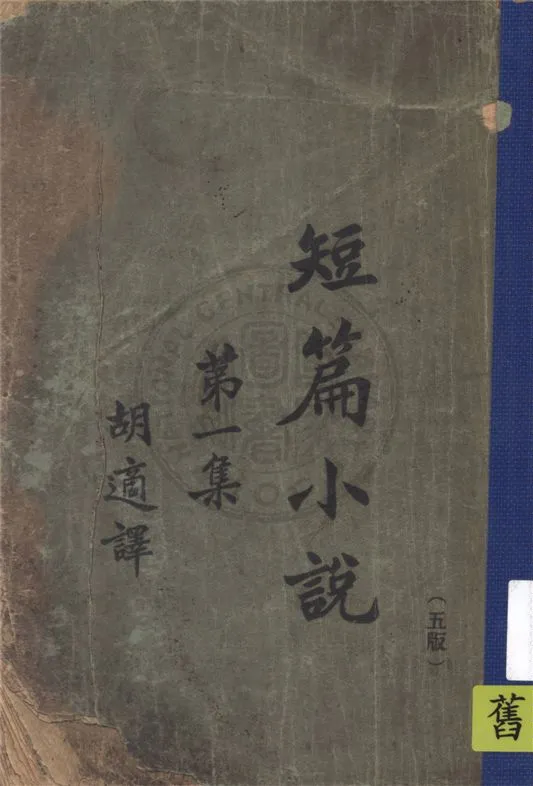 短篇小說
第一集
胡適譯
（五版）
舊